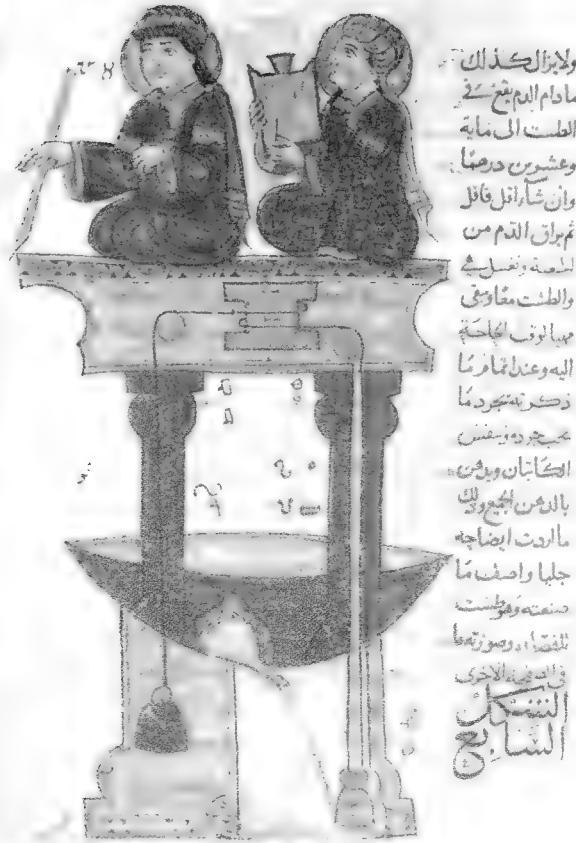 ولا يزال كذلك
مادام الدم يقع في
الطست الى ماية
وعشرين درهما
وان شا اقل فاقل
ثم يراق الدم من
والطست معا ويبقى
مهيا لوقت الحاجة
اليه وعند اتمام ما
ذكرته تجرد ما
الكاتبان ويدهن
بالدهن الجميع وذلك
ما اردت ايضاحه
جليا واصف ما
صنعته وهو طست
للفصاد وصورته ما
في الصفحة الاخرى
الشكل
السابع